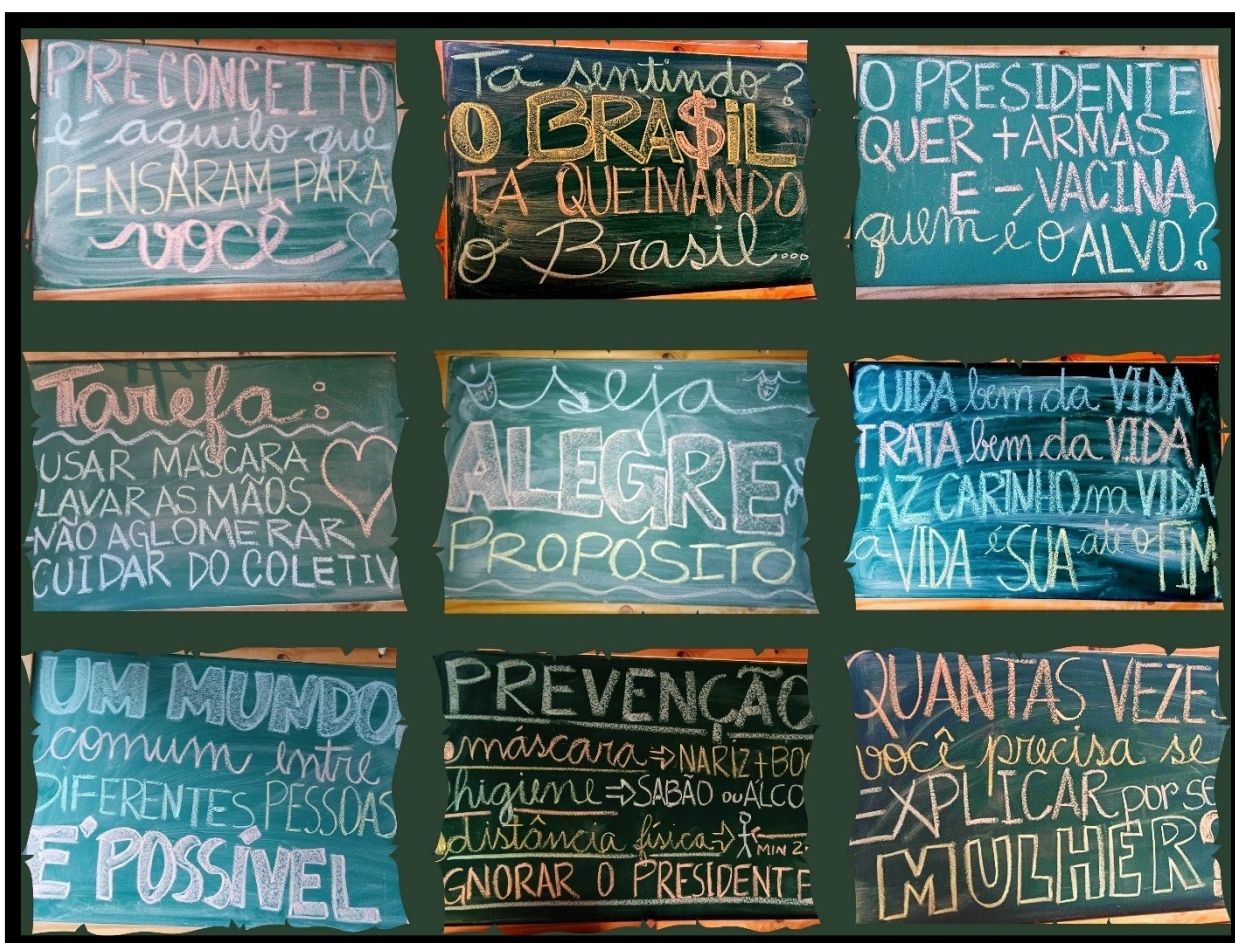 PRECONCEITO
é aquilo que
PENSARAM PARA
você
Tá sentindo?
O BRA$iL
TÁ QUEIMANDO
o Brasil...
O PRESIDENTE
QUER + ARMAS
E - VACINA
quem é o ALVO?
Tarefa:
USAR MÁSCARA
LAVAR AS MÃOS
NÃO AGLOMERAR
CUIDAR DO COLETIV
seja
ALEGRE
PROPÓSITO
CUIDA bem da VIDA
TRATA bem da VIDA
FAZ CARINHO na VIDA
a VIDA é SUA até o FIM
UM MUNDO
comum entre
DIFERENTES PESSOAS
É POSSÍVEL
PREVENÇÃO
máscara ⇒ NARIZ + BO
higiene ⇒ SABÃO ou ÁLCO
distância física ⇒ MIN 2
GNORAR O PRESIDENTE
QUANTAS VEZES
você precisa se
EXPLICAR por se
MULHER?